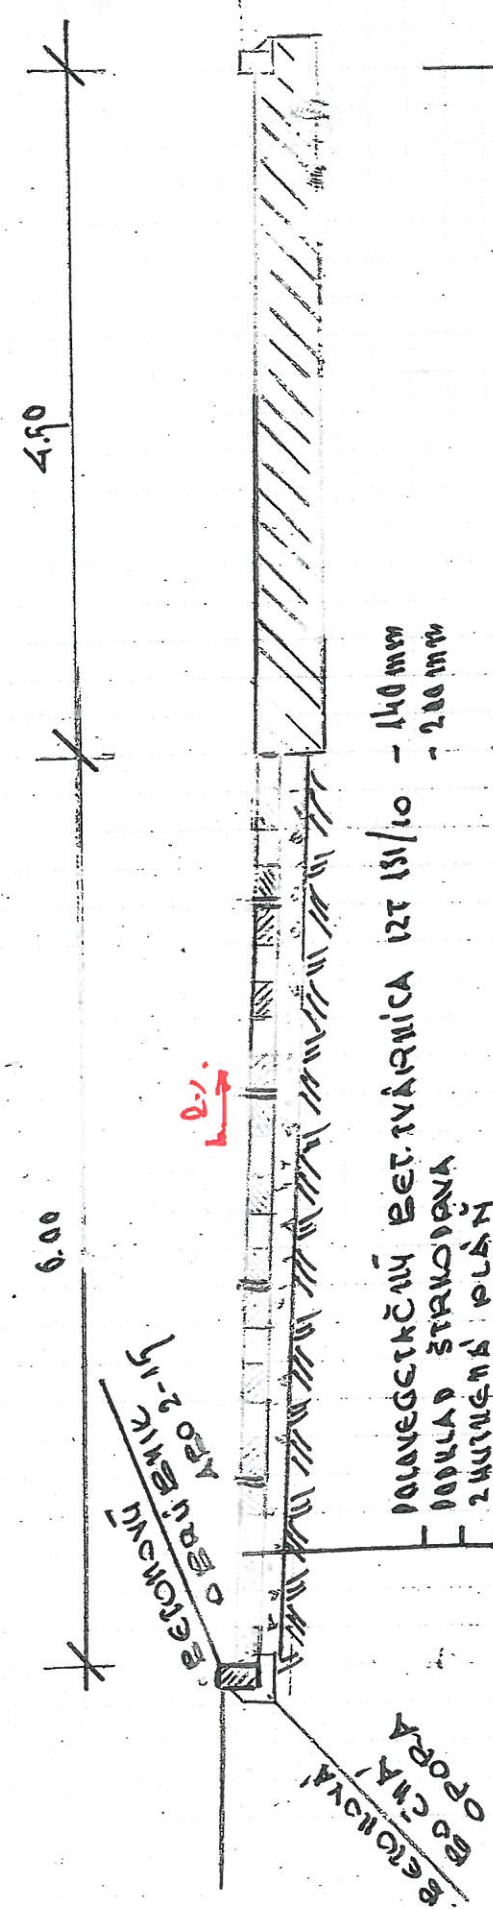 6.00
4.50
BETONOVÝ
OBRUBNIK
ABO 2-15
2%
POLOVEGETAČNÝ BET. TVÁRNICA IZT 131/10 - 140 mm
PODKLAD ŠTRKODRVA - 200 mm
ZHUTNENÁ PLÁŇ
BETONOVÁ
BOČNÁ
OPORA